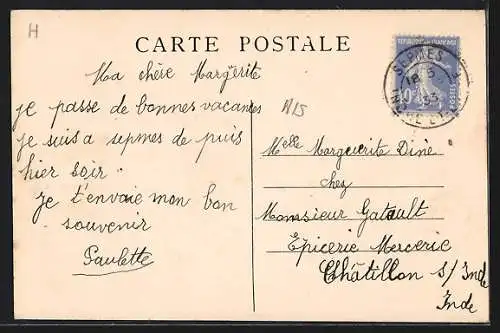 H
CARTE POSTALE
Ma chère Margerite
je passe de bonnes vacances
je suis a sepmes de puis
hier soir.
Je t'envoie mon bon
souvenir
Paulette
A15
REPUBLIQUE FRANÇAISE
POSTES
SEPMES
18
33
Melle Marguerite Diné
chez
Monsieur Gatault
Epicerie Mercerie
Châtillon s/ Inde
Inde